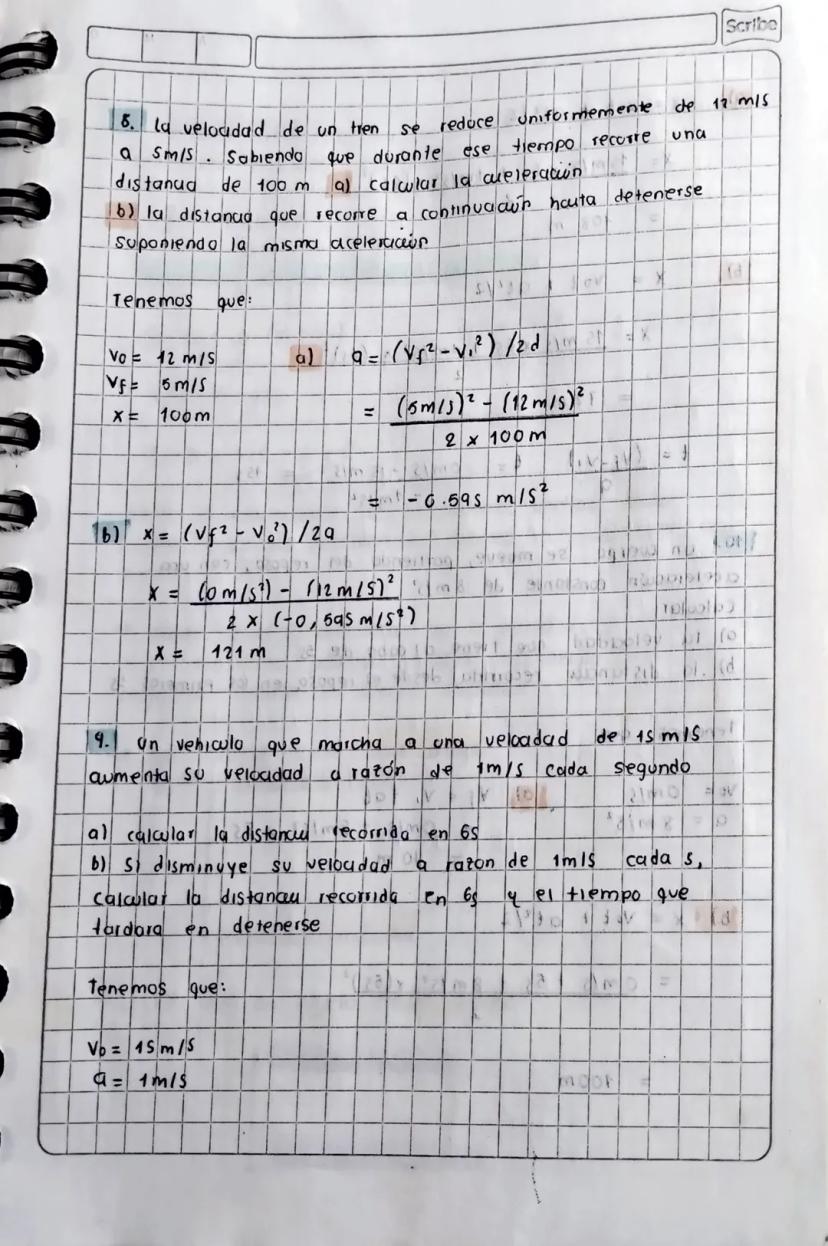 Scribe
8. la velocidad de un tren se reduce uniformemente de 12 m/s
a 5m/s. Sabiendo que durante ese tiempo recorre una
distancia de 100 m a) calcular la aceleración
b) la distancia que recorre a continuación hasta detenerse
suponiendo la misma aceleración
Tenemos que:
Vo = 12 m/s
Vf = 5 m/s
x = 100m
a) a = (Vf² - V₁²) /2d
= (5m/s)² - (12m/s)²
2 x 100m
= -0.595 m/s²
b) x = (Vf² - Vo²) /2a
x = (0m/s²) - (12m/s)²
2 x (-0,595 m/s²)
x = 121 m
9. Un vehiculo que marcha a una velocidad de 15 m/s
aumenta su velocidad a razón de 1m/s cada segundo
a) calcular la distancia recorrida en 6s
b) si disminuye su velocidad a razon de 1m/s cada s,
calcular la distancia recorrida en 6s y el tiempo que
tardara en detenerse
tenemos que:
Vo = 15 m/s
a = 1m/s